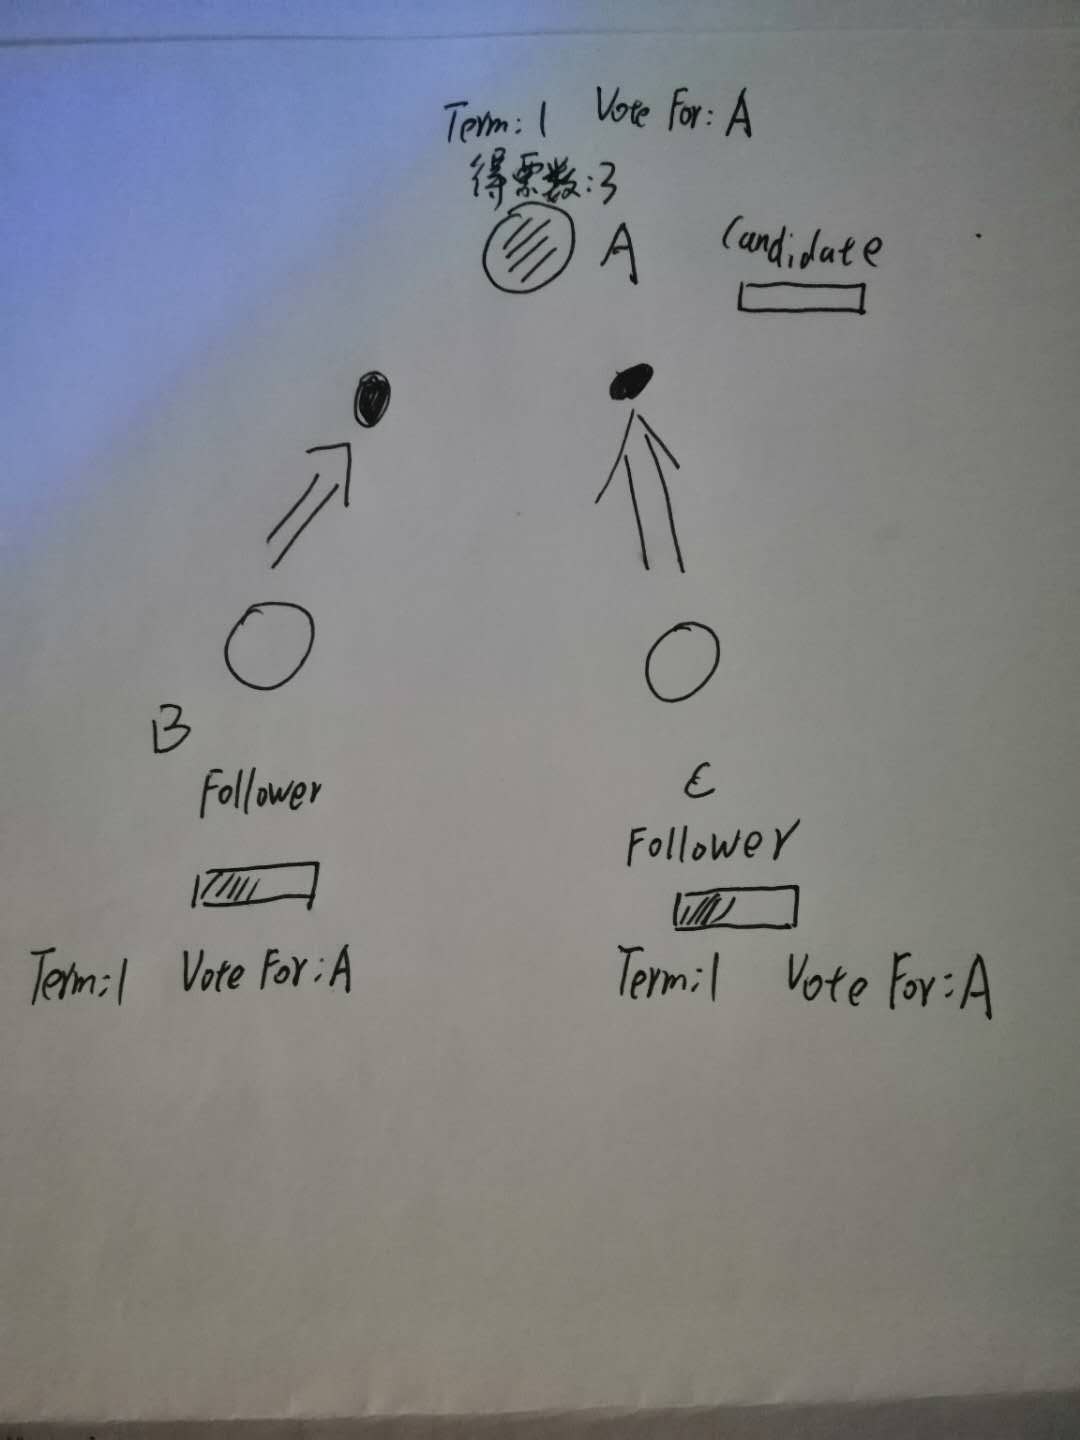 Term: 1 Vote For: A
得票数: 3
A Candidate
B
Follower
Term: 1 Vote For: A
C
Follower
Term: 1 Vote For: A